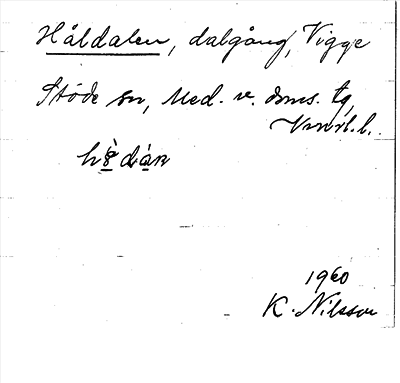 Håldalen, dalgång, Vigge
Stöde sn, Med. v. doms. tg,
Vnrl. l.
hå̀dàn
1960
K. Nilsson